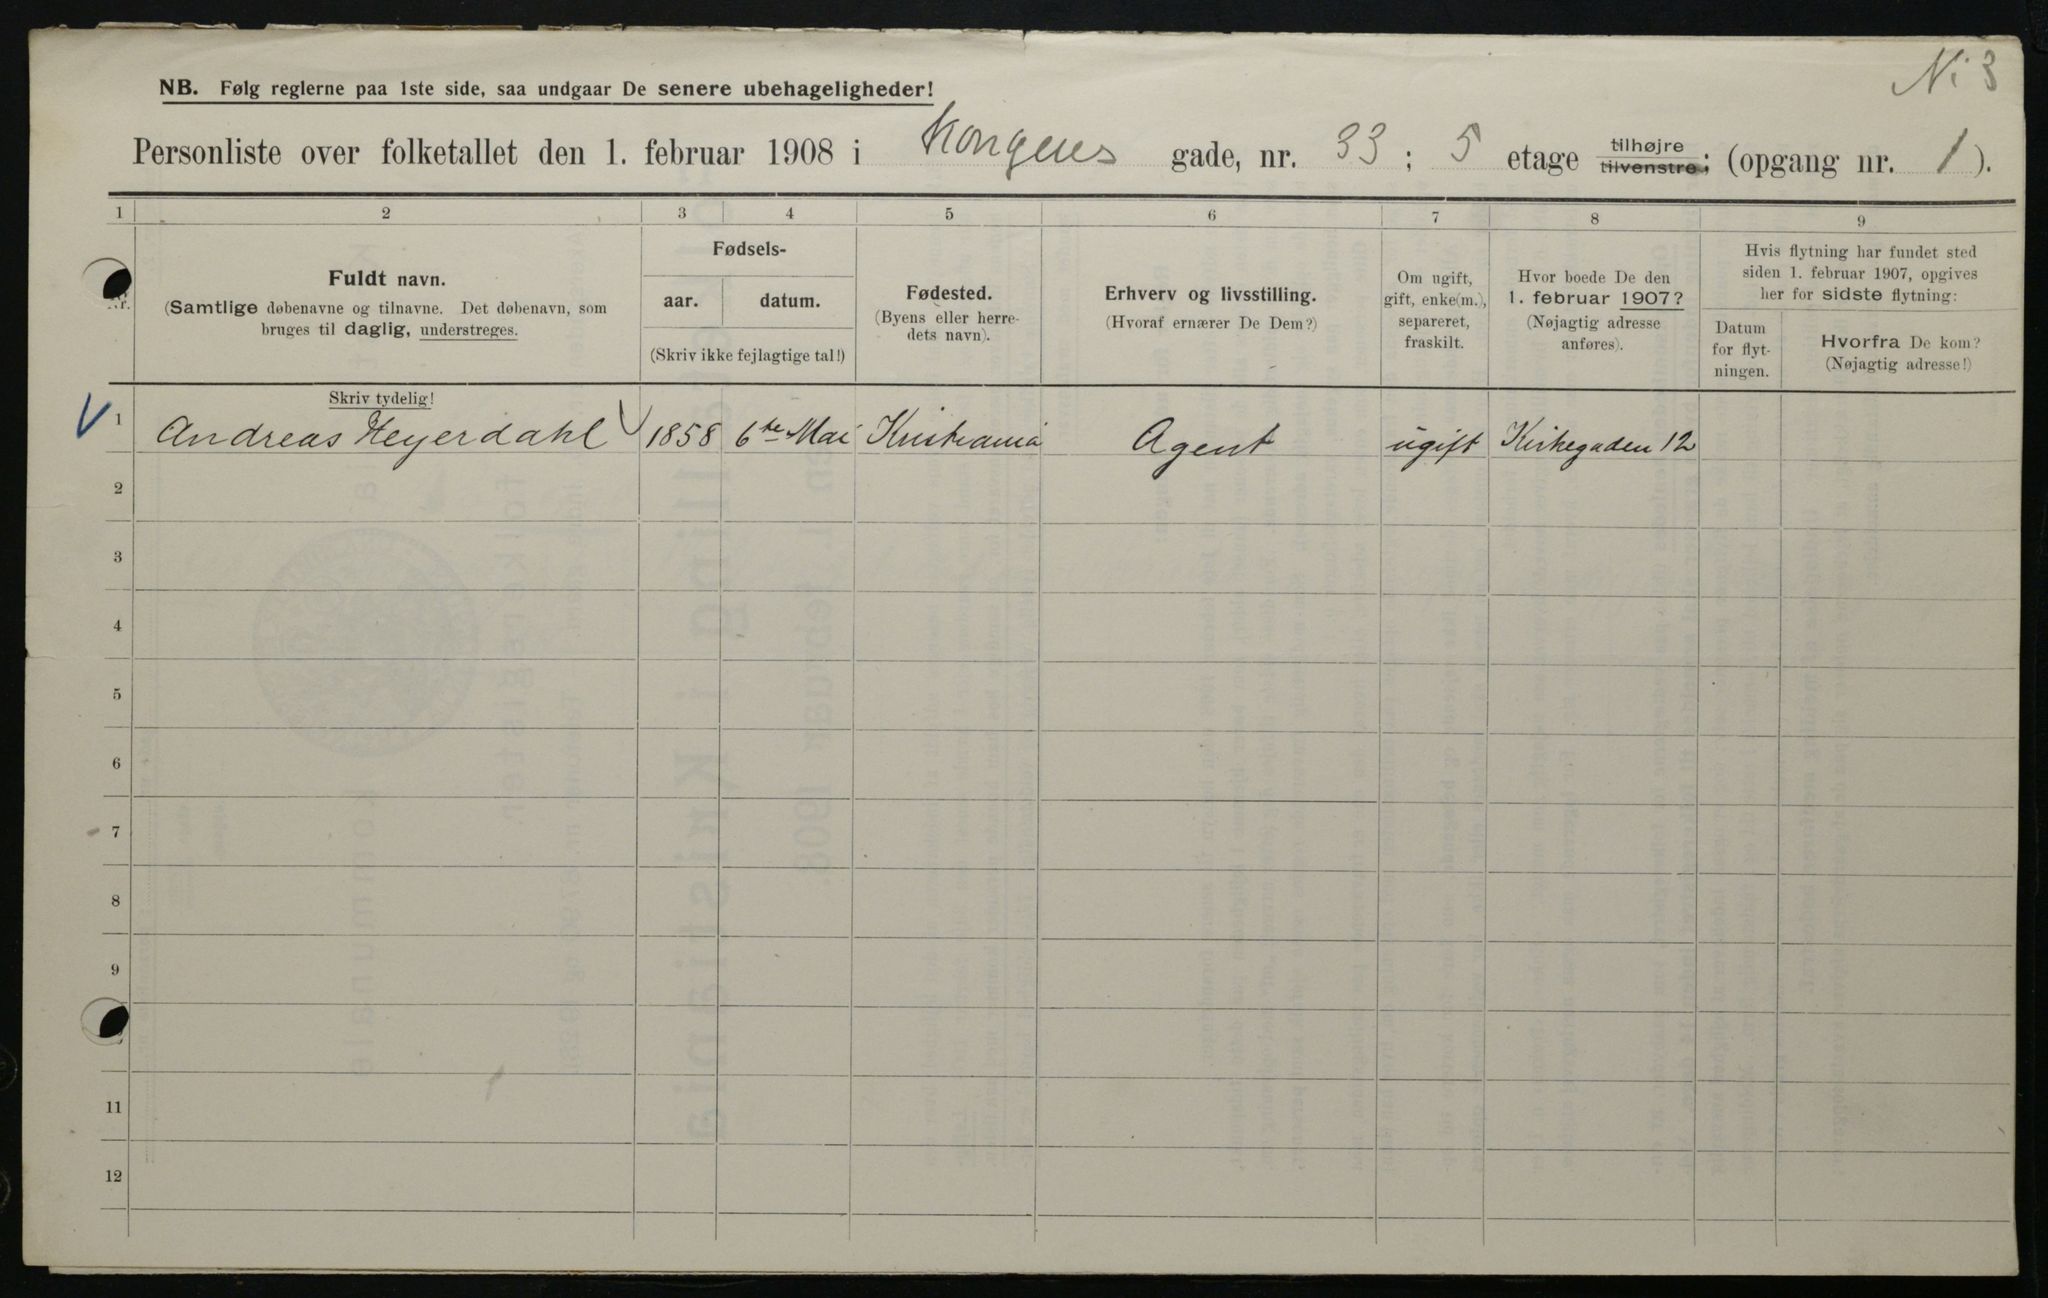 No 3
NB. Følg reglerne paa 1ste side, saa undgaar De senere ubehageligheder!
Personliste over folketallet den 1. februar 1908 i Kongens gade, nr. 33 ; 5 etage tilhøjre tilvenstre; (opgang nr. 1 ).
1 2 3 4 5 6 7 8 9
Nr.
Fuldt navn.
(Samtlige døbenavne og tilnavne. Det døbenavn, som
bruges til daglig, understreges.
Fødsels-
aar. datum.
(Skriv ikke fejlagtige tal!)
Fødested.
(Byens eller herre-
dets navn).
Erhverv og livsstilling.
(Hvoraf ernærer De Dem?)
Om ugift,
gift, enke(m.),
separeret,
fraskilt.
Hvor boede De den
1. februar 1907?
(Nøjagtig adresse
anføres).
Hvis flytning har fundet sted
siden 1. februar 1907, opgives
her for sidste flytning:
Datum
for flyt-
ningen.
Hvorfra De kom?
(Nøjagtig adresse!)
Skriv tydelig!
1 Andreas Heyerdahl 1858 6te Mai Kristiania Agent ugift Kirkegaden 12
2
3
4
5
6
7
8
9
11
12